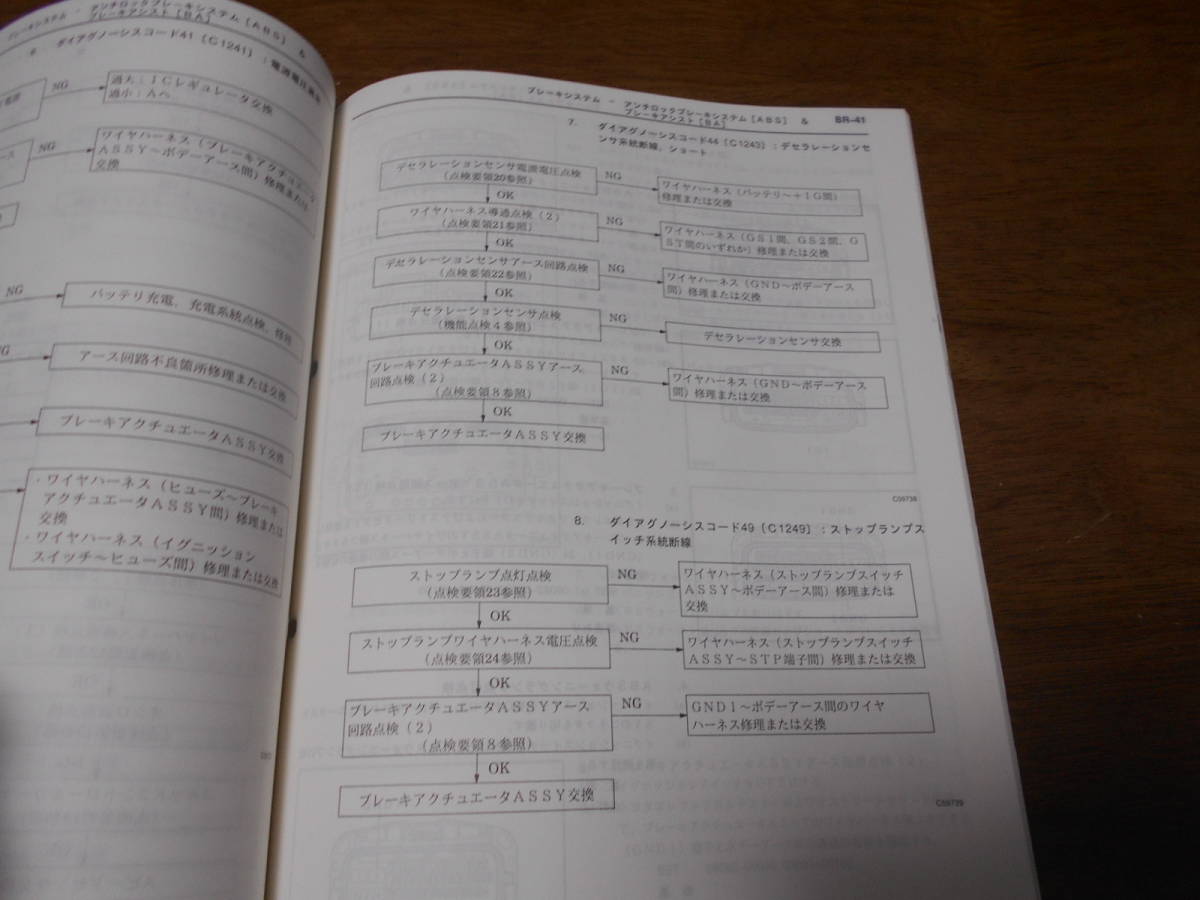 ブレーキシステム － アンチロックブレーキシステム［ＡＢＳ］ ＆
ブレーキアシスト［ＢＡ］
ダイアグノーシスコード41〔Ｃ1241〕：電源電圧
NG
過大：ＩＣレギュレータ交換
過小：Ａへ
NG
ワイヤハーネス（ブレーキアクチュエータ
ＡＳＳＹ〜ボデーアース間）修理または
交換
NG
バッテリ充電、充電系統点検、修理
アース回路不良箇所修理または交換
ブレーキアクチュエータＡＳＳＹ交換
・ワイヤハーネス（ヒューズ〜ブレーキ
アクチュエータＡＳＳＹ間）修理または
交換
・ワイヤハーネス（イグニッション
スイッチ〜ヒューズ間）修理または交換
ブレーキシステム － アンチロックブレーキシステム［ＡＢＳ］ ＆
ブレーキアシスト［ＢＡ］
BR-41
7. ダイアグノーシスコード44〔Ｃ1243〕：デセラレーションセ
ンサ系統断線、ショート
デセラレーションセンサ電源電圧点検
（点検要領20参照）
NG
ワイヤハーネス（バッテリ〜＋ＩＧ間）
修理または交換
OK
ワイヤハーネス導通点検（２）
（点検要領21参照）
NG
ワイヤハーネス（ＧＳ１間、ＧＳ２間、Ｇ
ＳＴ間のいずれか）修理または交換
OK
デセラレーションセンサアース回路点検
（点検要領22参照）
NG
ワイヤハーネス（ＧＮＤ〜ボデーアース
間）修理または交換
OK
デセラレーションセンサ点検
（機能点検４参照）
NG
デセラレーションセンサ交換
OK
ブレーキアクチュエータＡＳＳＹアース
回路点検（２）
（点検要領８参照）
NG
ワイヤハーネス（ＧＮＤ〜ボデーアース
間）修理または交換
OK
ブレーキアクチュエータＡＳＳＹ交換
C59738
8. ダイアグノーシスコード49〔Ｃ1249〕：ストップランプス
イッチ系統断線
ストップランプ点灯点検
（点検要領23参照）
NG
ワイヤハーネス（ストップランプスイッチ
ＡＳＳＹ〜ボデーアース間）修理または
交換
OK
ストップランプワイヤハーネス電圧点検
（点検要領24参照）
NG
ワイヤハーネス（ストップランプスイッチ
ＡＳＳＹ〜ＳＴＰ端子間）修理または交換
OK
ブレーキアクチュエータＡＳＳＹアース
回路点検（２）
（点検要領８参照）
NG
ＧＮＤ１〜ボデーアース間のワイヤ
ハーネス修理または交換
OK
ブレーキアクチュエータＡＳＳＹ交換
C59739